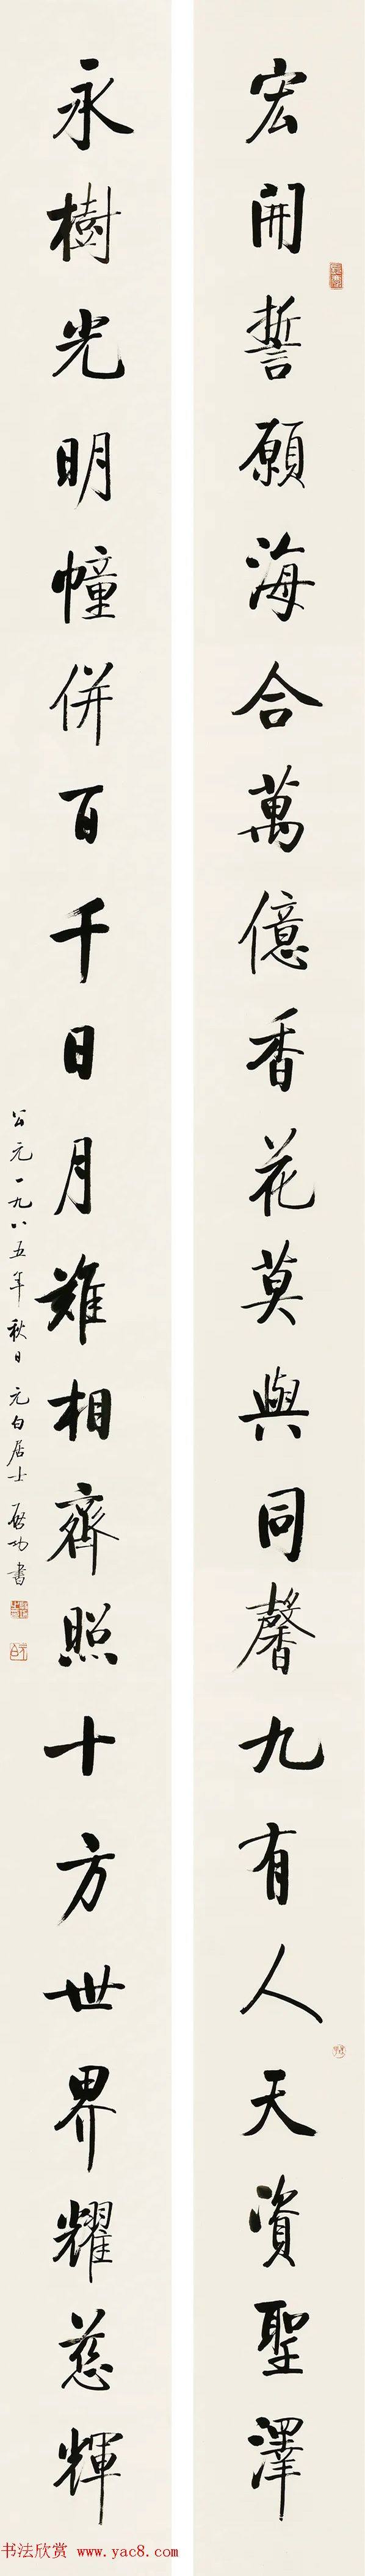 宏開誓願海合萬億香花莫與同馨九有人天資聖澤
永樹光明幢併百千日月難相齊照十方世界耀慈輝
公元一九八五年秋日 元白居士 啟功書
书法欣赏 www.yac8.com